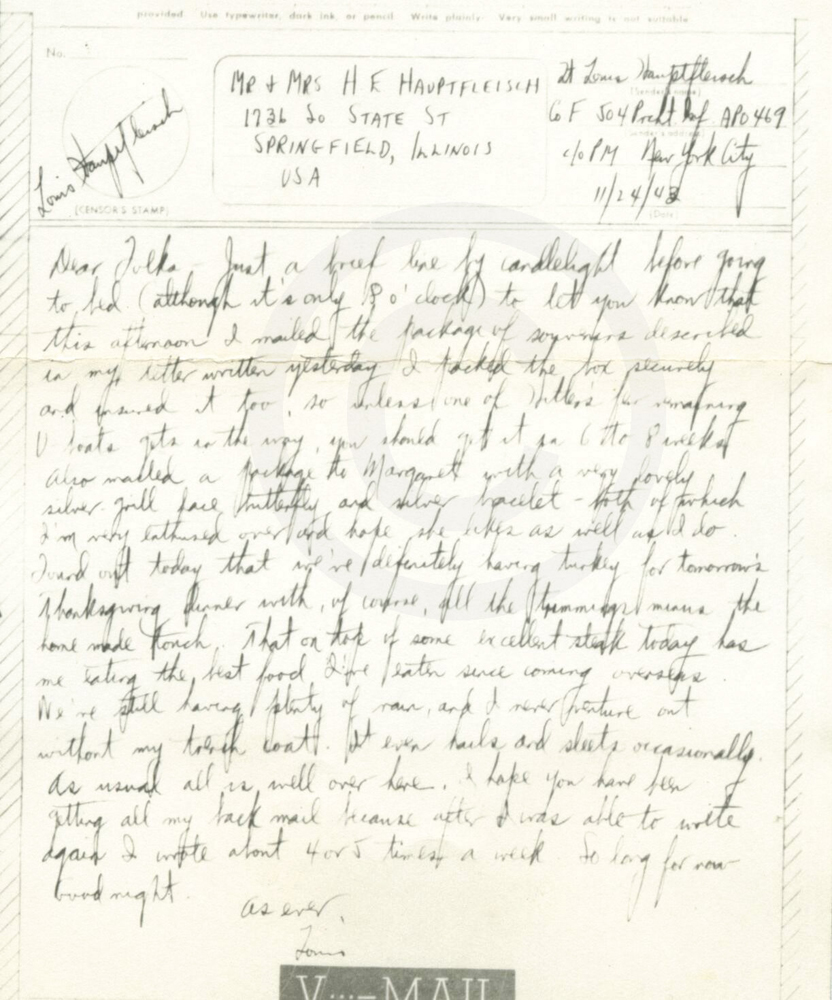 provided. Use typewriter, dark ink, or pencil. Write plainly. Very small writing is not suitable.
No.
MR & MRS H E HAUPTFLEISCH
1736 So STATE ST
SPRINGFIELD, ILLINOIS
USA
Louis Hauptfleisch
(CENSOR'S STAMP)
Lt Louis Hauptfleisch
(Sender's name)
Co F 504 Prcht Inf APO 469
(Sender's address)
c/o PM New York City
11/24/43
(Date)
Dear Folks – Just a brief line by candlelight before going
to bed (although it's only 8 o'clock) to let you know that
this afternoon I mailed the package of souvenirs described
in my letter written yesterday. I packed the box securely
and insured it too, so unless one of Hitler's few remaining
U boats gets in the way, you should get it in 6 to 8 weeks.
Also mailed a package to Margaret with a very lovely
silver grill face, butterfly and silver bracelet – both of which
I'm very enthused over and hope she likes as well as I do.
Found out today that we're definitely having turkey for tomorrow's
Thanksgiving dinner with, of course, all the trimmings minus the
home made touch. That on top of some excellent steak today has
me eating the best food I've eaten since coming overseas.
We're still having plenty of rain, and I never venture out
without my trench coat. It even hails and sleets occasionally.
As usual all is well over here. I hope you have been
getting all my back mail because after I was able to write
again I wrote about 4 or 5 times a week. So long for now
Good night.
As ever,
Louis
V···–MAIL